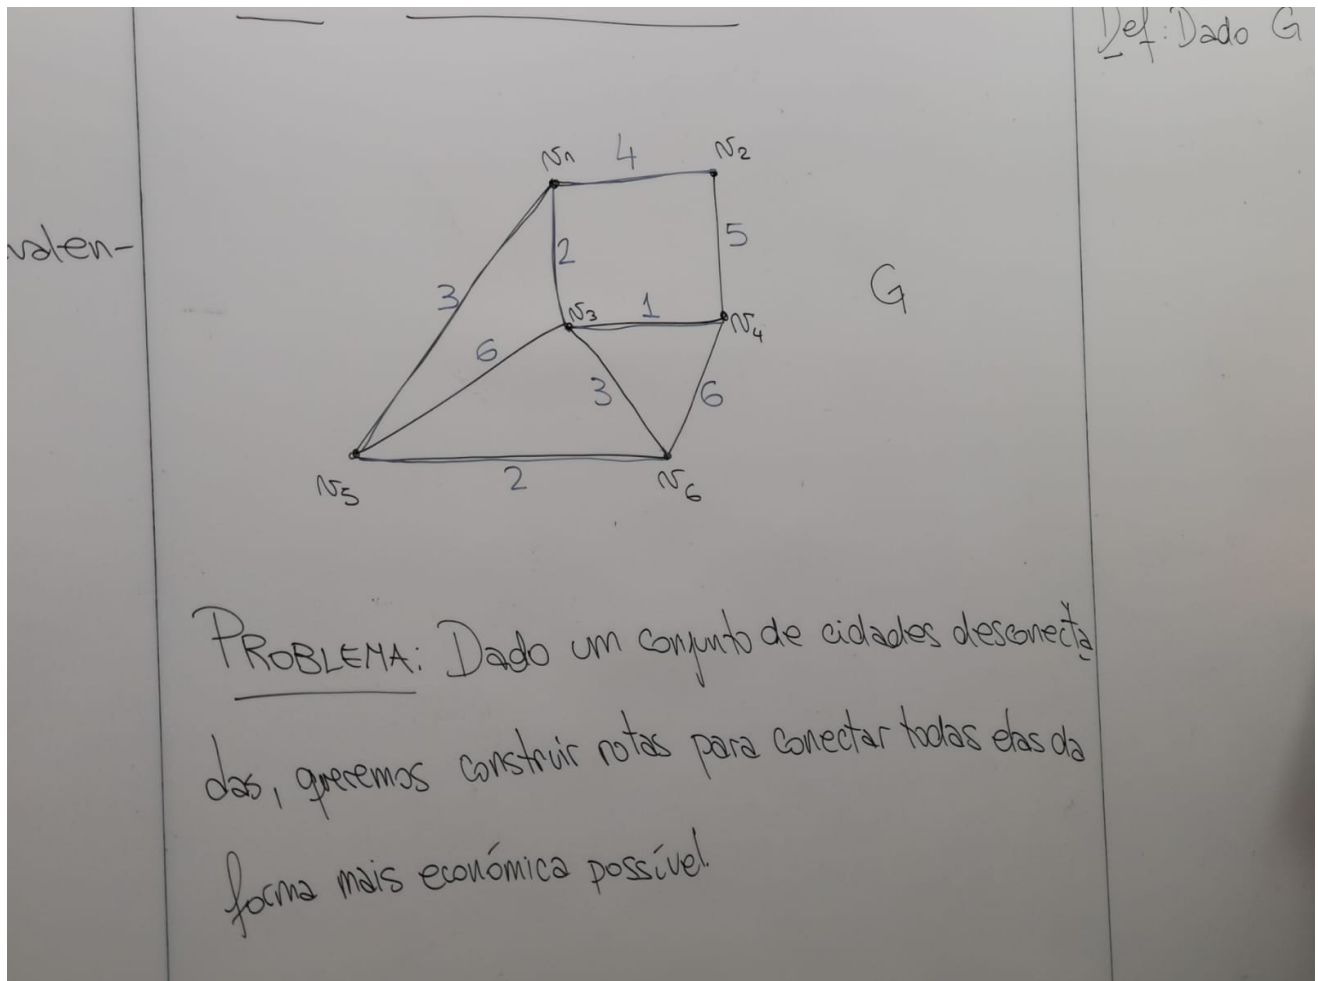 Def: Dado G
valen-
v1 4 v2
2 5
3 v3 1 v4
G
6 3 6
v5 2 v6
PROBLEMA: Dado um conjunto de cidades desconecta
das, queremos construir rotas para conectar todas elas da
forma mais económica possível.